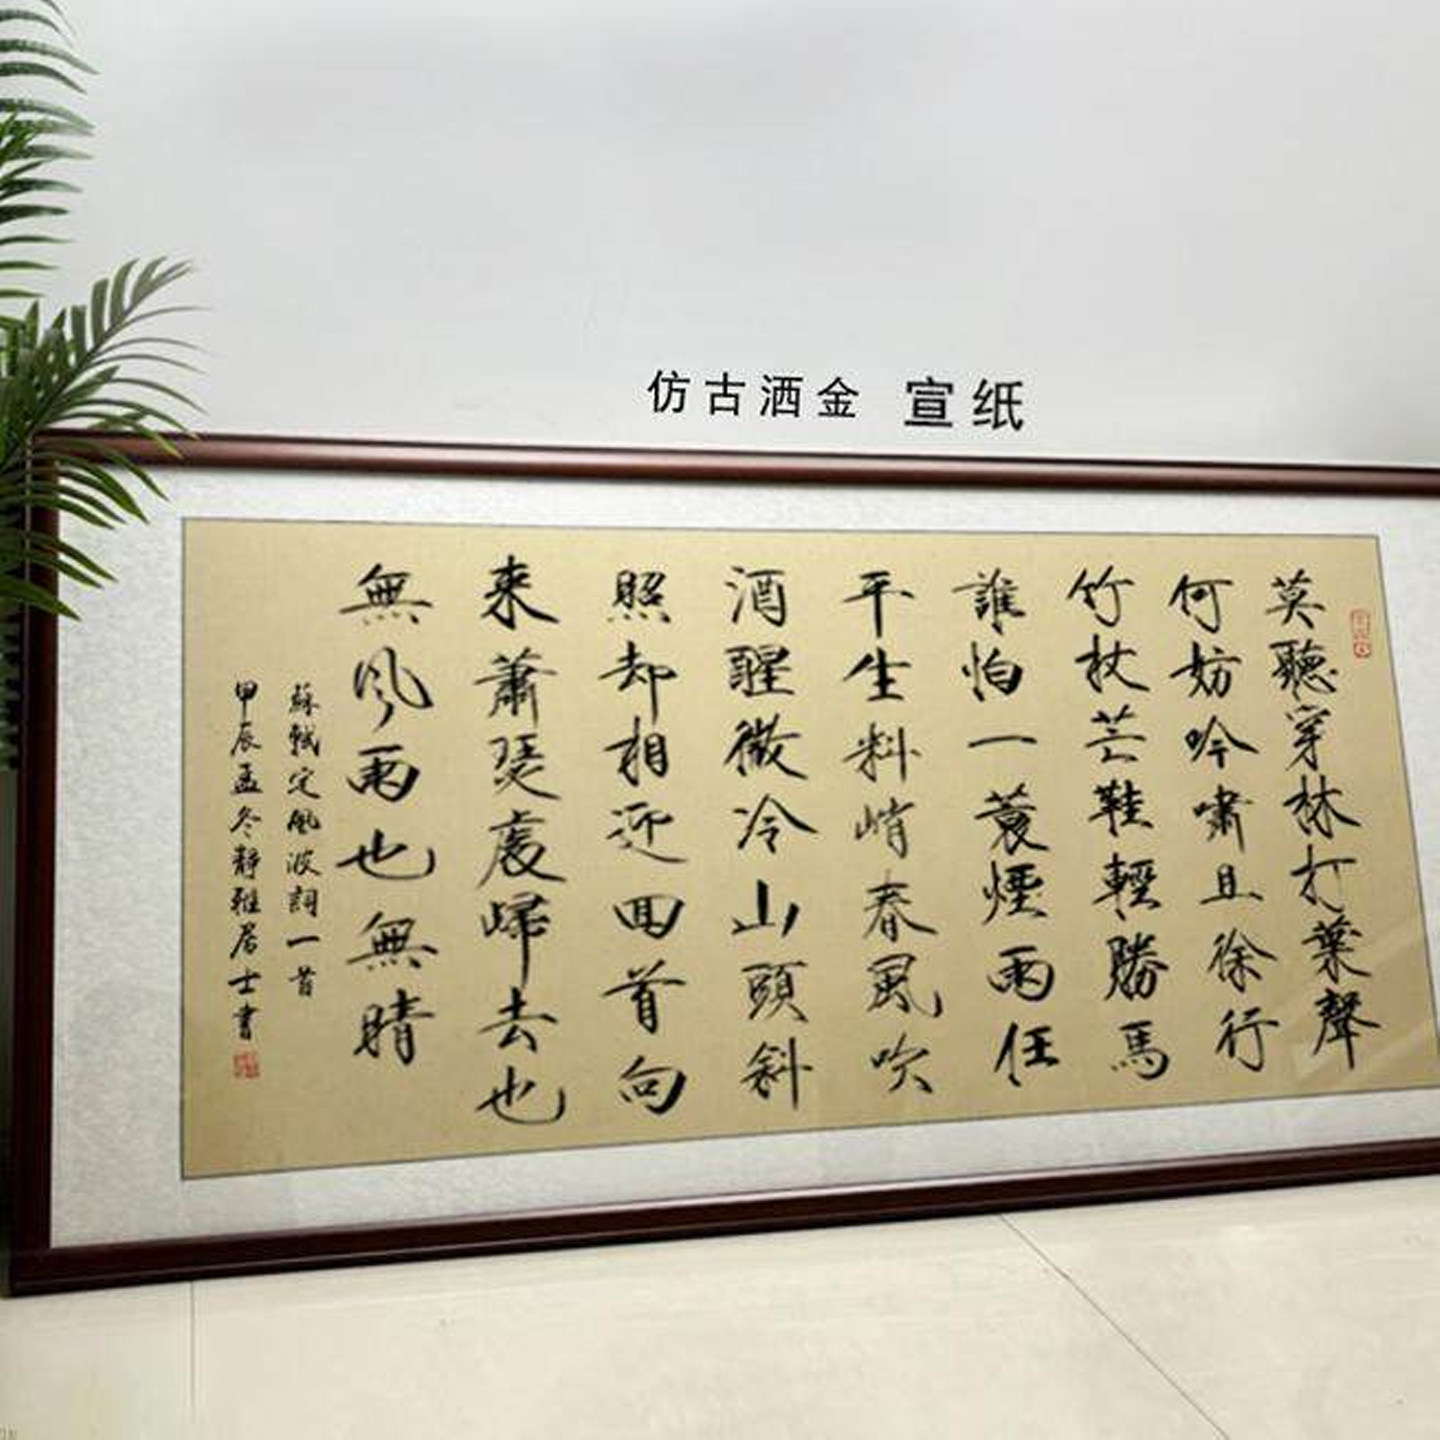 仿古洒金 宣纸
莫聽穿林打葉聲
何妨吟嘯且徐行
竹杖芒鞋輕勝馬
誰怕一蓑煙雨任
平生料峭春風吹
酒醒微冷山頭斜
照却相迎回首向
来蕭瑟處歸去也
無風雨也無晴
蘇軾定風波詞一首
甲辰孟冬靜雅居士書